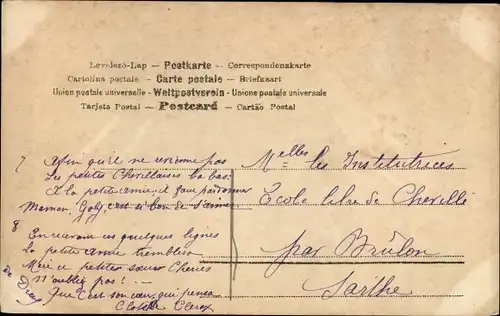 Levelező-Lap — Postkarte — Correspondenzkarte
Cartolina postale — Carte postale — Briefkaart
Union postale universelle — Weltpostverein — Unione postale universale
Tarjeta Postal — Postcard — Cartão Postal
7 Afin qu'il ne vienne pas
Les petites Chevillaises
à la petite amie, il faut pardonner
Maman, c'est si bon de s'aimer
8 En ces quelques lignes
La petite amie
Mère petites sœurs Chéries
N'oubliez pas! —
Que c'est son cœur qui pense
Clotilde Clerex
Melles les Institutrices
Ecole libre de Chevillé
par Brûlon
Sarthe